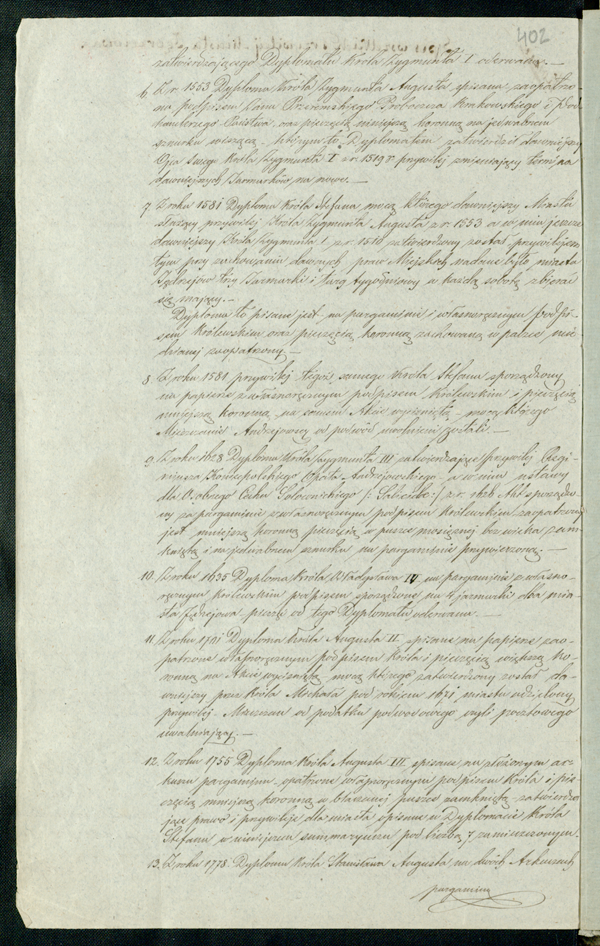 402
zatwierdzającego Dyplomatu Króla Zygmunta I oderwała. —
6. Z r. 1553 Dyploma Króla Zygmunta Augusta spisane zaopatrzo-
ne podpisem Jana Przerembskiego Proboszcza Krakowskiego i Pod-
kanclerzego Państwa, oraz pieczęcią mniejszą koronną na jedwabnem
sznurku wiszącą, którym to Dyplomatem zatwierdził dawniejszy
Ojca swego Króla Zygmunta I z r. 1519 przywilej zmieniający termina
dawniejszych Jarmarków na nowe. —
7. Z roku 1581 Dyploma Króla Stefana mocą którego dawniejszy Miastu
służący przywilej Króla Zygmunta Augusta z r. 1553 a w nim jeszcze
dawniejszy Króla Zygmunta I z r. 1519 zatwierdzony został, przywilejem
tym przy zachowaniu dawnych praw Miejskich nadane było miastu
Jędrzejów trzy Jarmarki i targ tygodniowy w każdą sobotę zbierać
się mający. —
Dyploma to pisane jest na pargaminie i własnoręcznym podpi-
sem Królewskim oraz pieczęcią koronną zachowaną w puszce mie-
dzianej zaopatrzony. —
8. Z roku 1581 przywilej tegoż samego Króla Stefana sporządzony
na papierze z własnoręcznym podpisem Królewskim i pieczęcią
mniejszą koronną na samem Akcie wyciśniętą, mocą którego
Mieszczanie Andrzejowscy od podwód uwolnieni zostali. —
9. Z roku 1628 Dyploma Króla Zygmunta III zatwierdzające przywilej
Koniecpolskiego Opata Andrzejowskiego a w nim ustawy
dla Osobnego Cechu z r. 1626 Akt sporządzo-
ny na pargaminie z własnoręcznym podpisem Królewskim zaopatrzony
jest mniejszą koronną pieczęcią w puszce mosiężnej bez wieka zam-
kniętą i na jedwabnem sznurku na pargaminie przywieszoną. —
10. Z roku 1635 Dyploma Króla Władysława IV na pargaminie z własno-
ręcznym królewskim podpisem sporządzone na 4 jarmarki dla mia-
sta Jędrzejowa pieczęć od tego Dyplomatu oderwana. —
11. Z roku 1701 Dyploma Króla Augusta II spisane na papierze zao-
patrzone własnoręcznym podpisem Króla i pieczęcią większą ko-
ronną na Akcie wyciśniętą mocą którego zatwierdzony został da-
wniejszy przez Króla Michała pod rokiem 1671 miastu udzielony
przywilej Mieszczan od podatku podwodowego czyli pocztowego
uwalniający. —
12. Z roku 1755 Dyploma Króla Augusta III spisane na złożonym ar-
kuszu pargaminu, opatrzone własnoręcznym podpisem Króla i pie-
częcią mniejszą koronną w blaszanej puszce zamkniętą — zatwierdza-
jące prawo i przywileje dla miasta opisane w Dyplomacie Króla
Stefana w niniejszem summaryuszu pod liczbą 7 zamieszczonym.
13. Z roku 1778 Dyploma Króla Stanisława Augusta na dwóch Arkuszach
pargaminu